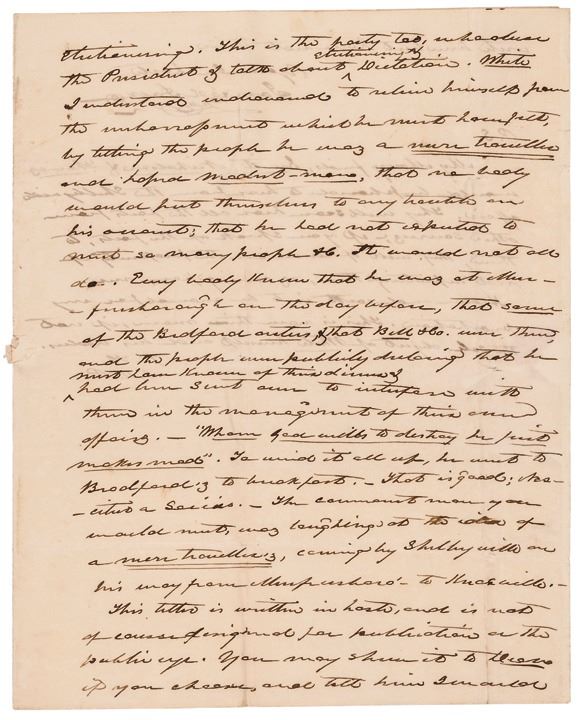 electioneering. This is the party too, who abuse
the President & talk about electioneering & Dictation. White
I understand endeavored to relieve himself from
the embarrassment which he must have felt,
by telling the people he was a mere traveller
and hoped modest-man, that no body
would put themselves to any trouble on
his account; that he had not expected to
meet so many people &c. It would not all
do. Every body knew that he was at Mur-
freesborough on the day before, that some
of the Bedford , & that Bell &c. were there,
and the people were publicly declaring that he
must have known of this dinner &
had been sent over to interfere with
them in the management of their own
affairs. — "Whom God wills to destroy he first
makes mad". To wind it all up, he went to
Bradford's to breakfast. — That is good;
 a . — The commonest man you
would meet, was laughing at the idea of
a mere traveller's, coming by Shelbyville on
his way from Murfreesboro' to Knoxville. —
This letter is written in haste, and is not
of course designed for publication or the
public eye. You may show it to
if you choose, and tell him I would